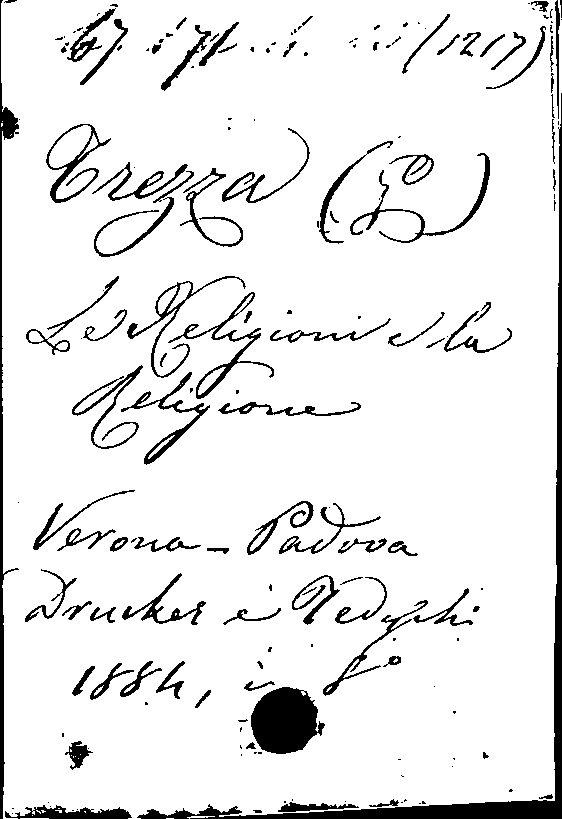 67 (1217)
Trezza (G)
Le Religioni e la
Religione
Verona - Padova
Drucker e Tedeschi
1884, in 8°